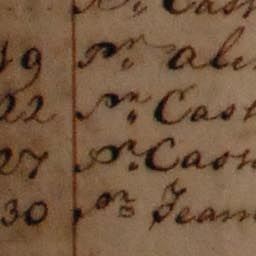 Cash
19 Pr. ali
22 Pr. Cash
27 Pr. Cash
30 Pr. Jeam